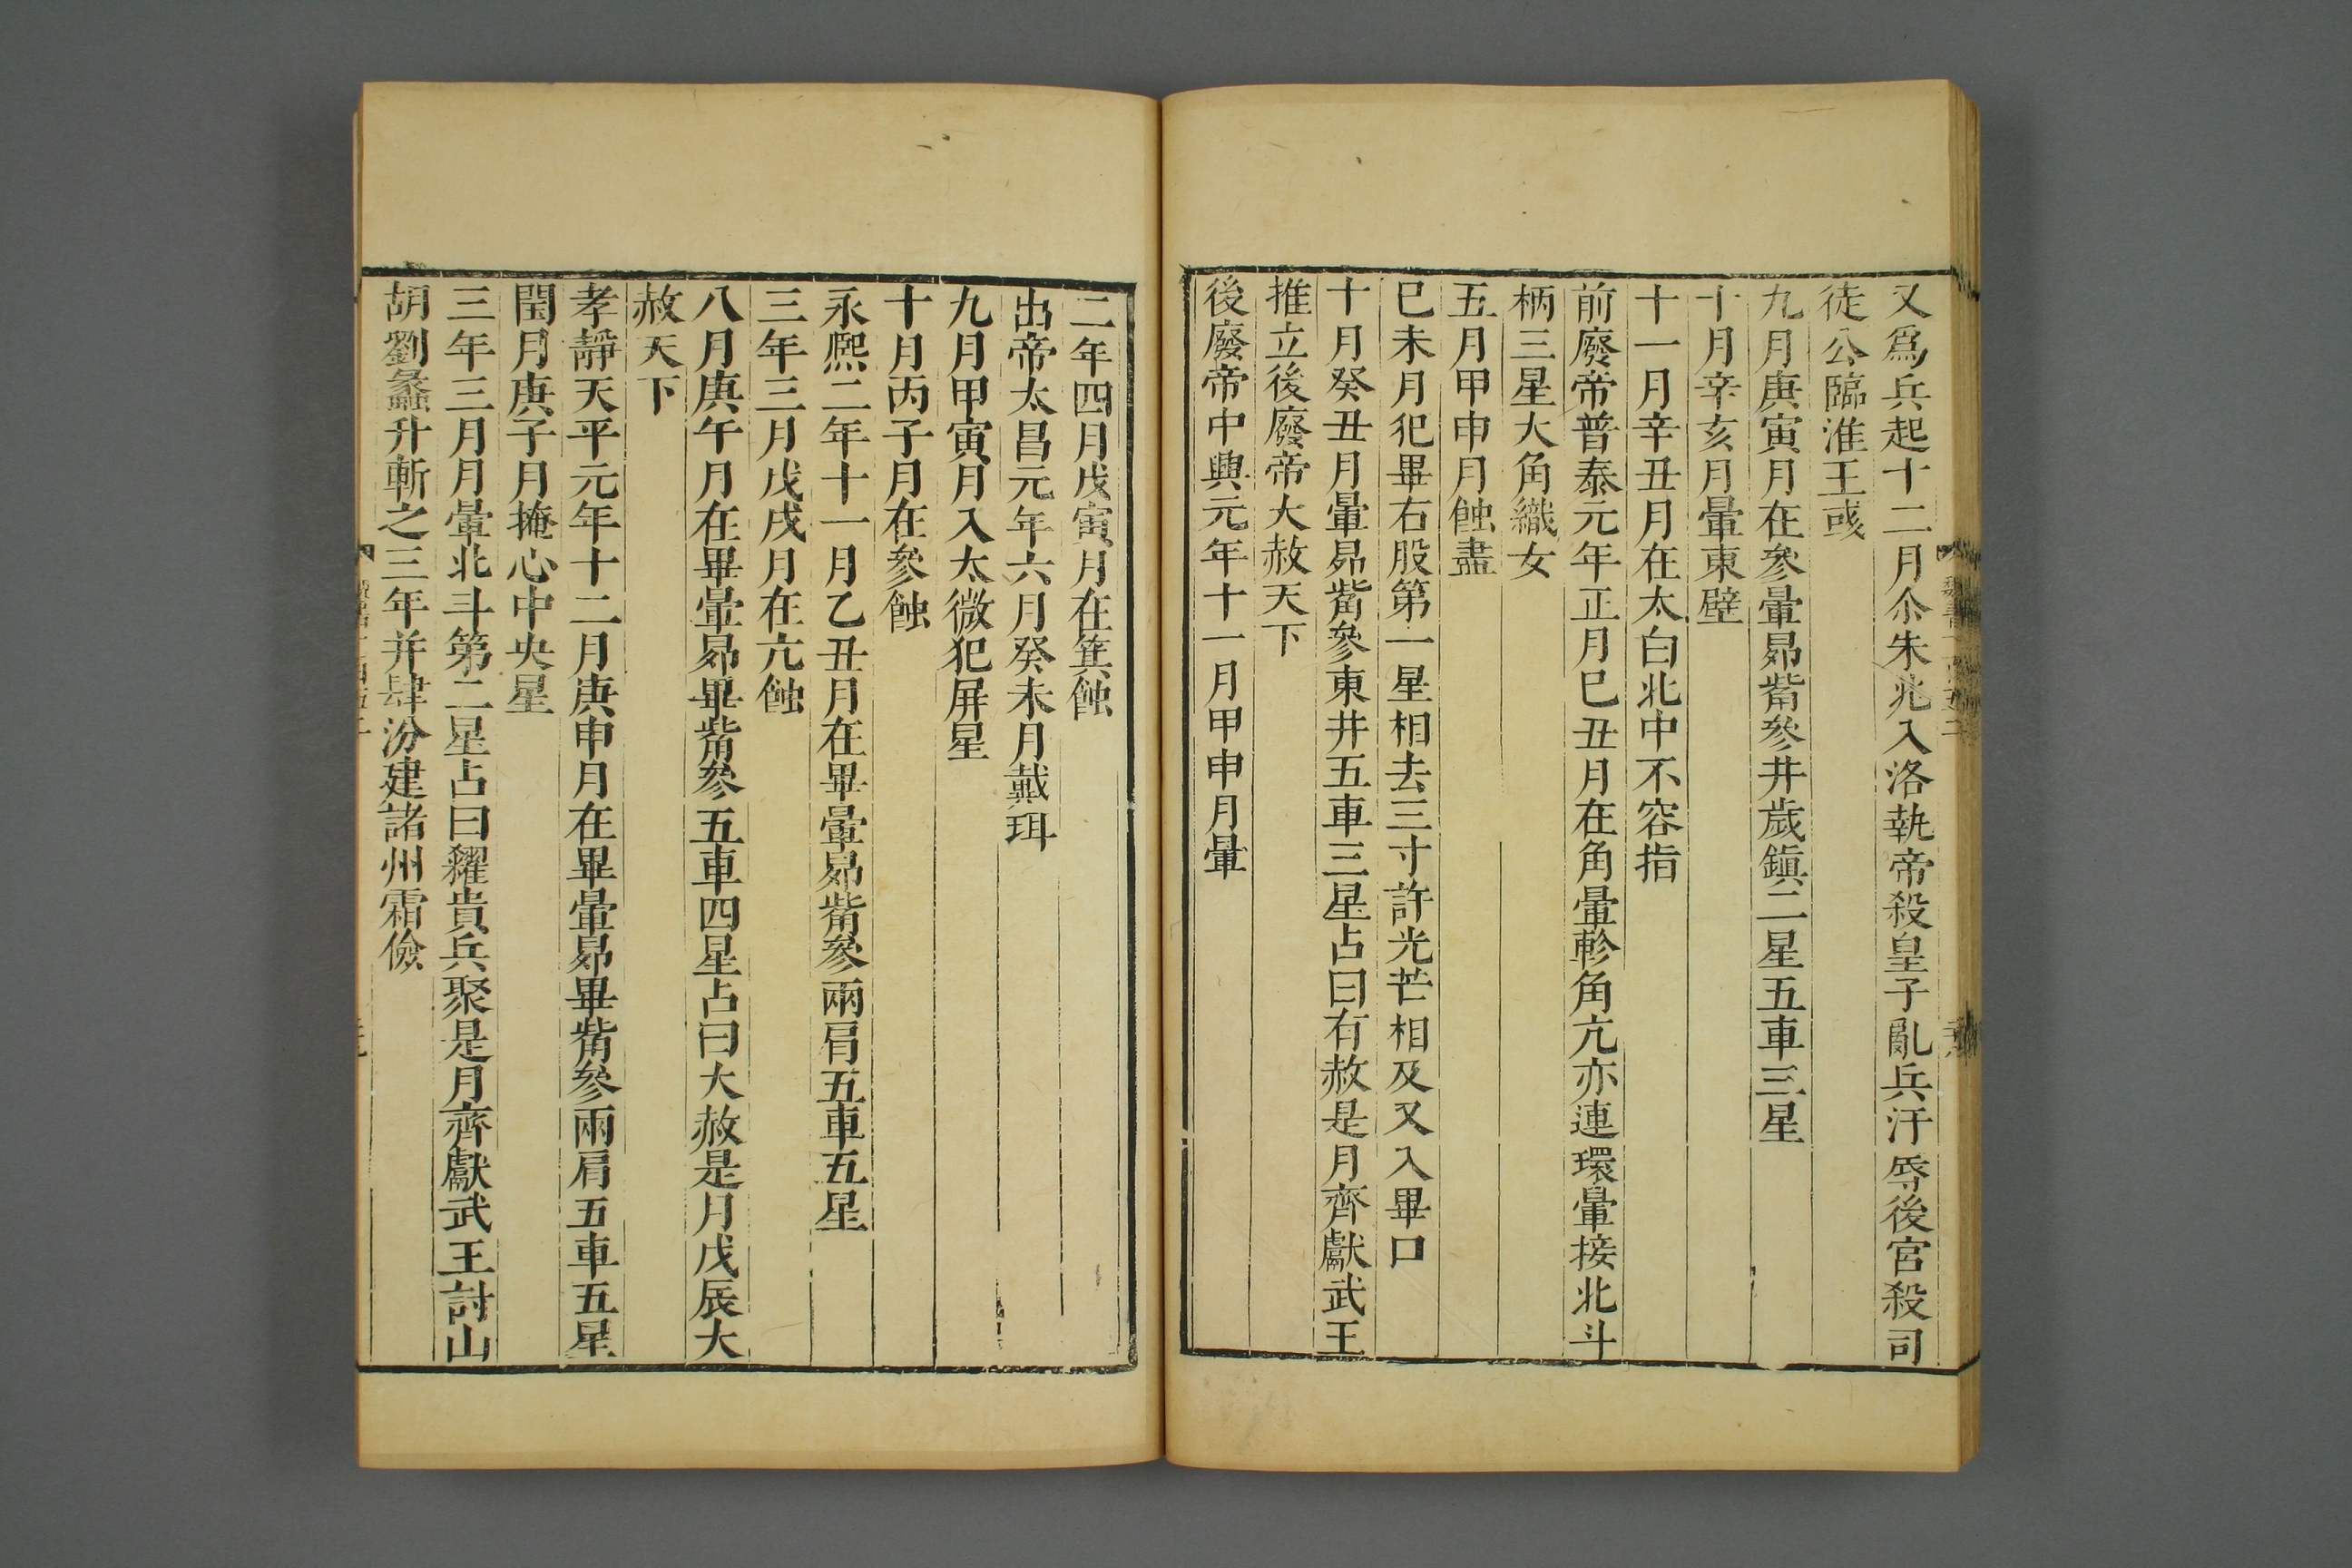 又爲兵起十二月尒朱兆入洛執帝殺皇子亂兵汙辱後宮殺司
徒公臨淮王彧
九月庚寅月在參暈昴觜參井歲鎭二星五車三星
十月辛亥月暈東壁
十一月辛丑月在太白北中不容指
前廢帝普泰元年正月巳丑月在角暈軫角亢亦連環暈接北斗
柄三星大角織女
五月甲申月蝕盡
巳未月犯畢右股第一星相去三寸許光芒相及又入畢口
十月癸丑月暈昴觜參東井五車三星占曰有赦是月齊獻武王
推立後廢帝大赦天下
後廢帝中興元年十一月甲申月暈
二年四月戊寅月在箕蝕
出帝太昌元年六月癸未月戴珥
九月甲寅月入太微犯屏星
十月丙子月在參蝕
永熈二年十一月乙丑月在畢暈昴觜參兩肩五車五星
三年三月戊戌月在亢蝕
八月庚午月在畢暈昴畢觜參五車四星占曰大赦是月戊辰大
赦天下
孝靜天平元年十二月庚申月在畢暈昴畢觜參兩肩五車五星
閏月庚子月掩心中央星
三年三月月暈北斗第二星占曰糴貴兵聚是月齊獻武王討山
胡劉蠡升斬之三年并肆汾建諸州霜儉